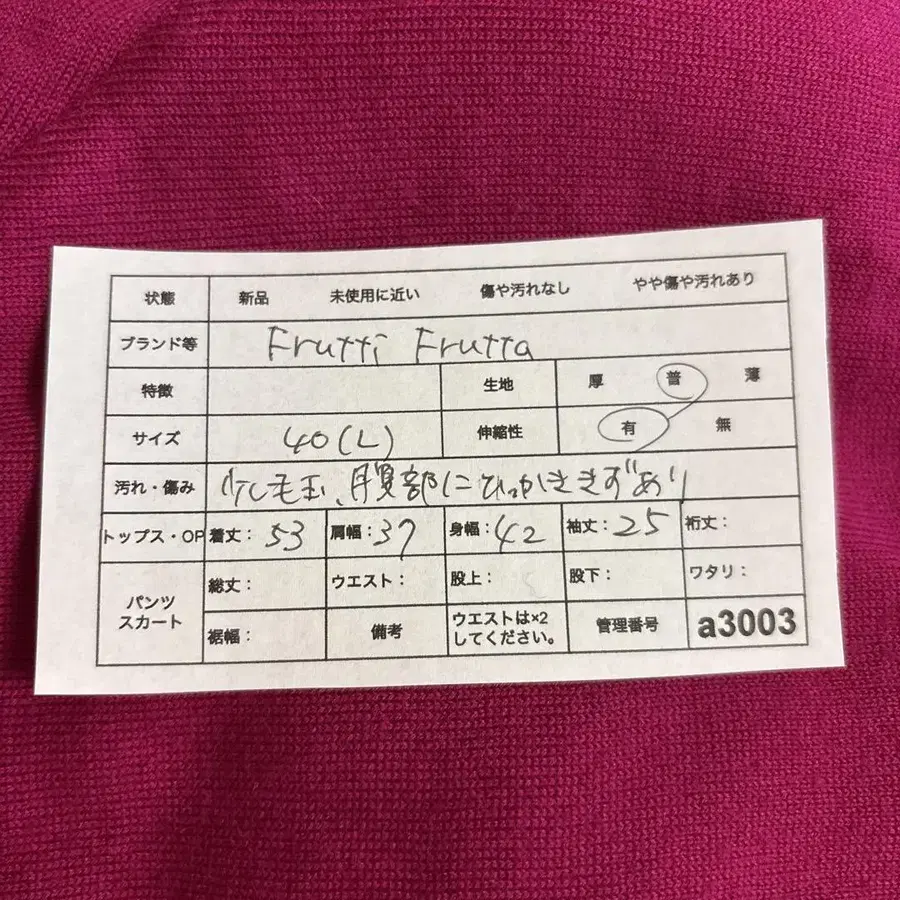 状態 新品 未使用に近い 傷や汚れなし やや傷や汚れあり
ブランド等 Frutti Frutta
特徴 生地 厚 普 薄
サイズ 40(L) 伸縮性 有 無
汚れ・傷み 少し毛玉、腹部にひっかききずあり
トップス・OP 着丈: 53 肩幅: 37 身幅: 42 袖丈: 25 裄丈:
パンツ スカート 総丈: ウエスト: 股上: 股下: ワタリ:
裾幅: 備考 ウエストは×2してください。 管理番号 a3003